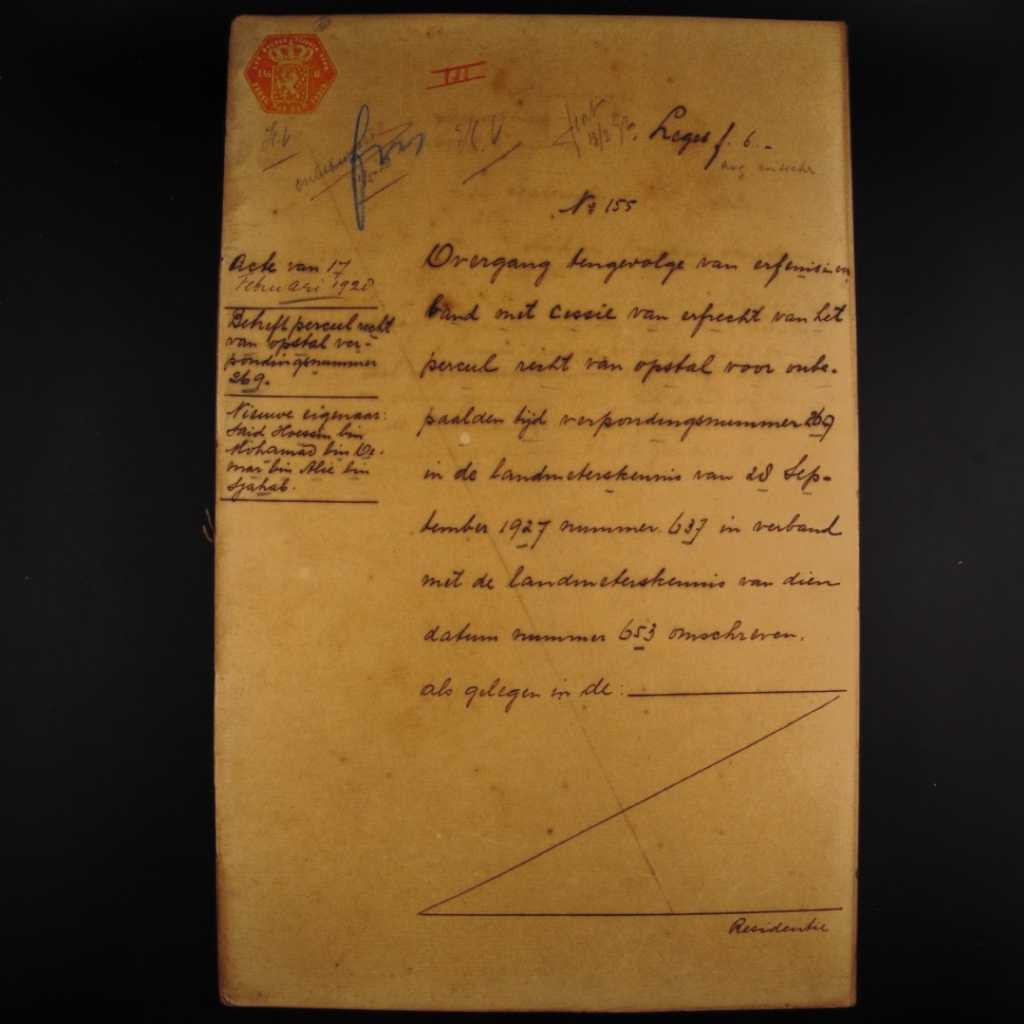 III
Leges f. 6.-
No 155
Acte van 17
Februari 1928
Betreft perceel recht
van opstal ver-
pondingsnummer
269.
Nieuwe eigenaar:
Said Hoessin bin
Mohamad bin Oe-
mar bin Alie bin
Sjahab.
Overgang tengevolge van erfenis in ver
band met cessie van erfrecht van het
perceel recht van opstal voor onbe-
paalden tijd verpondingsnummer 269
in de landmeterskennis van 28 Sep-
tember 1927 nummer 637 in verband
met de landmeterskennis van dien
datum nummer 653 omschreven.
als gelegen in de:
Residentie